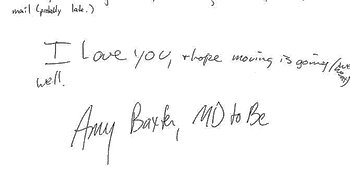 mail (probably late.)
I love you, + hope moving is going
well.
Amy Baxter, MD to Be